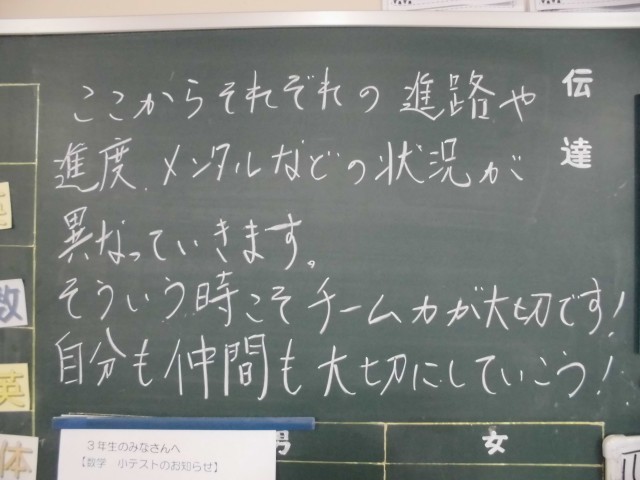 伝達
ここからそれぞれの進路や
進度、メンタルなどの状況が
異なっていきます。
そういう時こそチーム力が大切です!
自分も仲間も大切にしていこう!
数
英
体
3年生のみなさんへ
【数学 小テストのお知らせ】
女